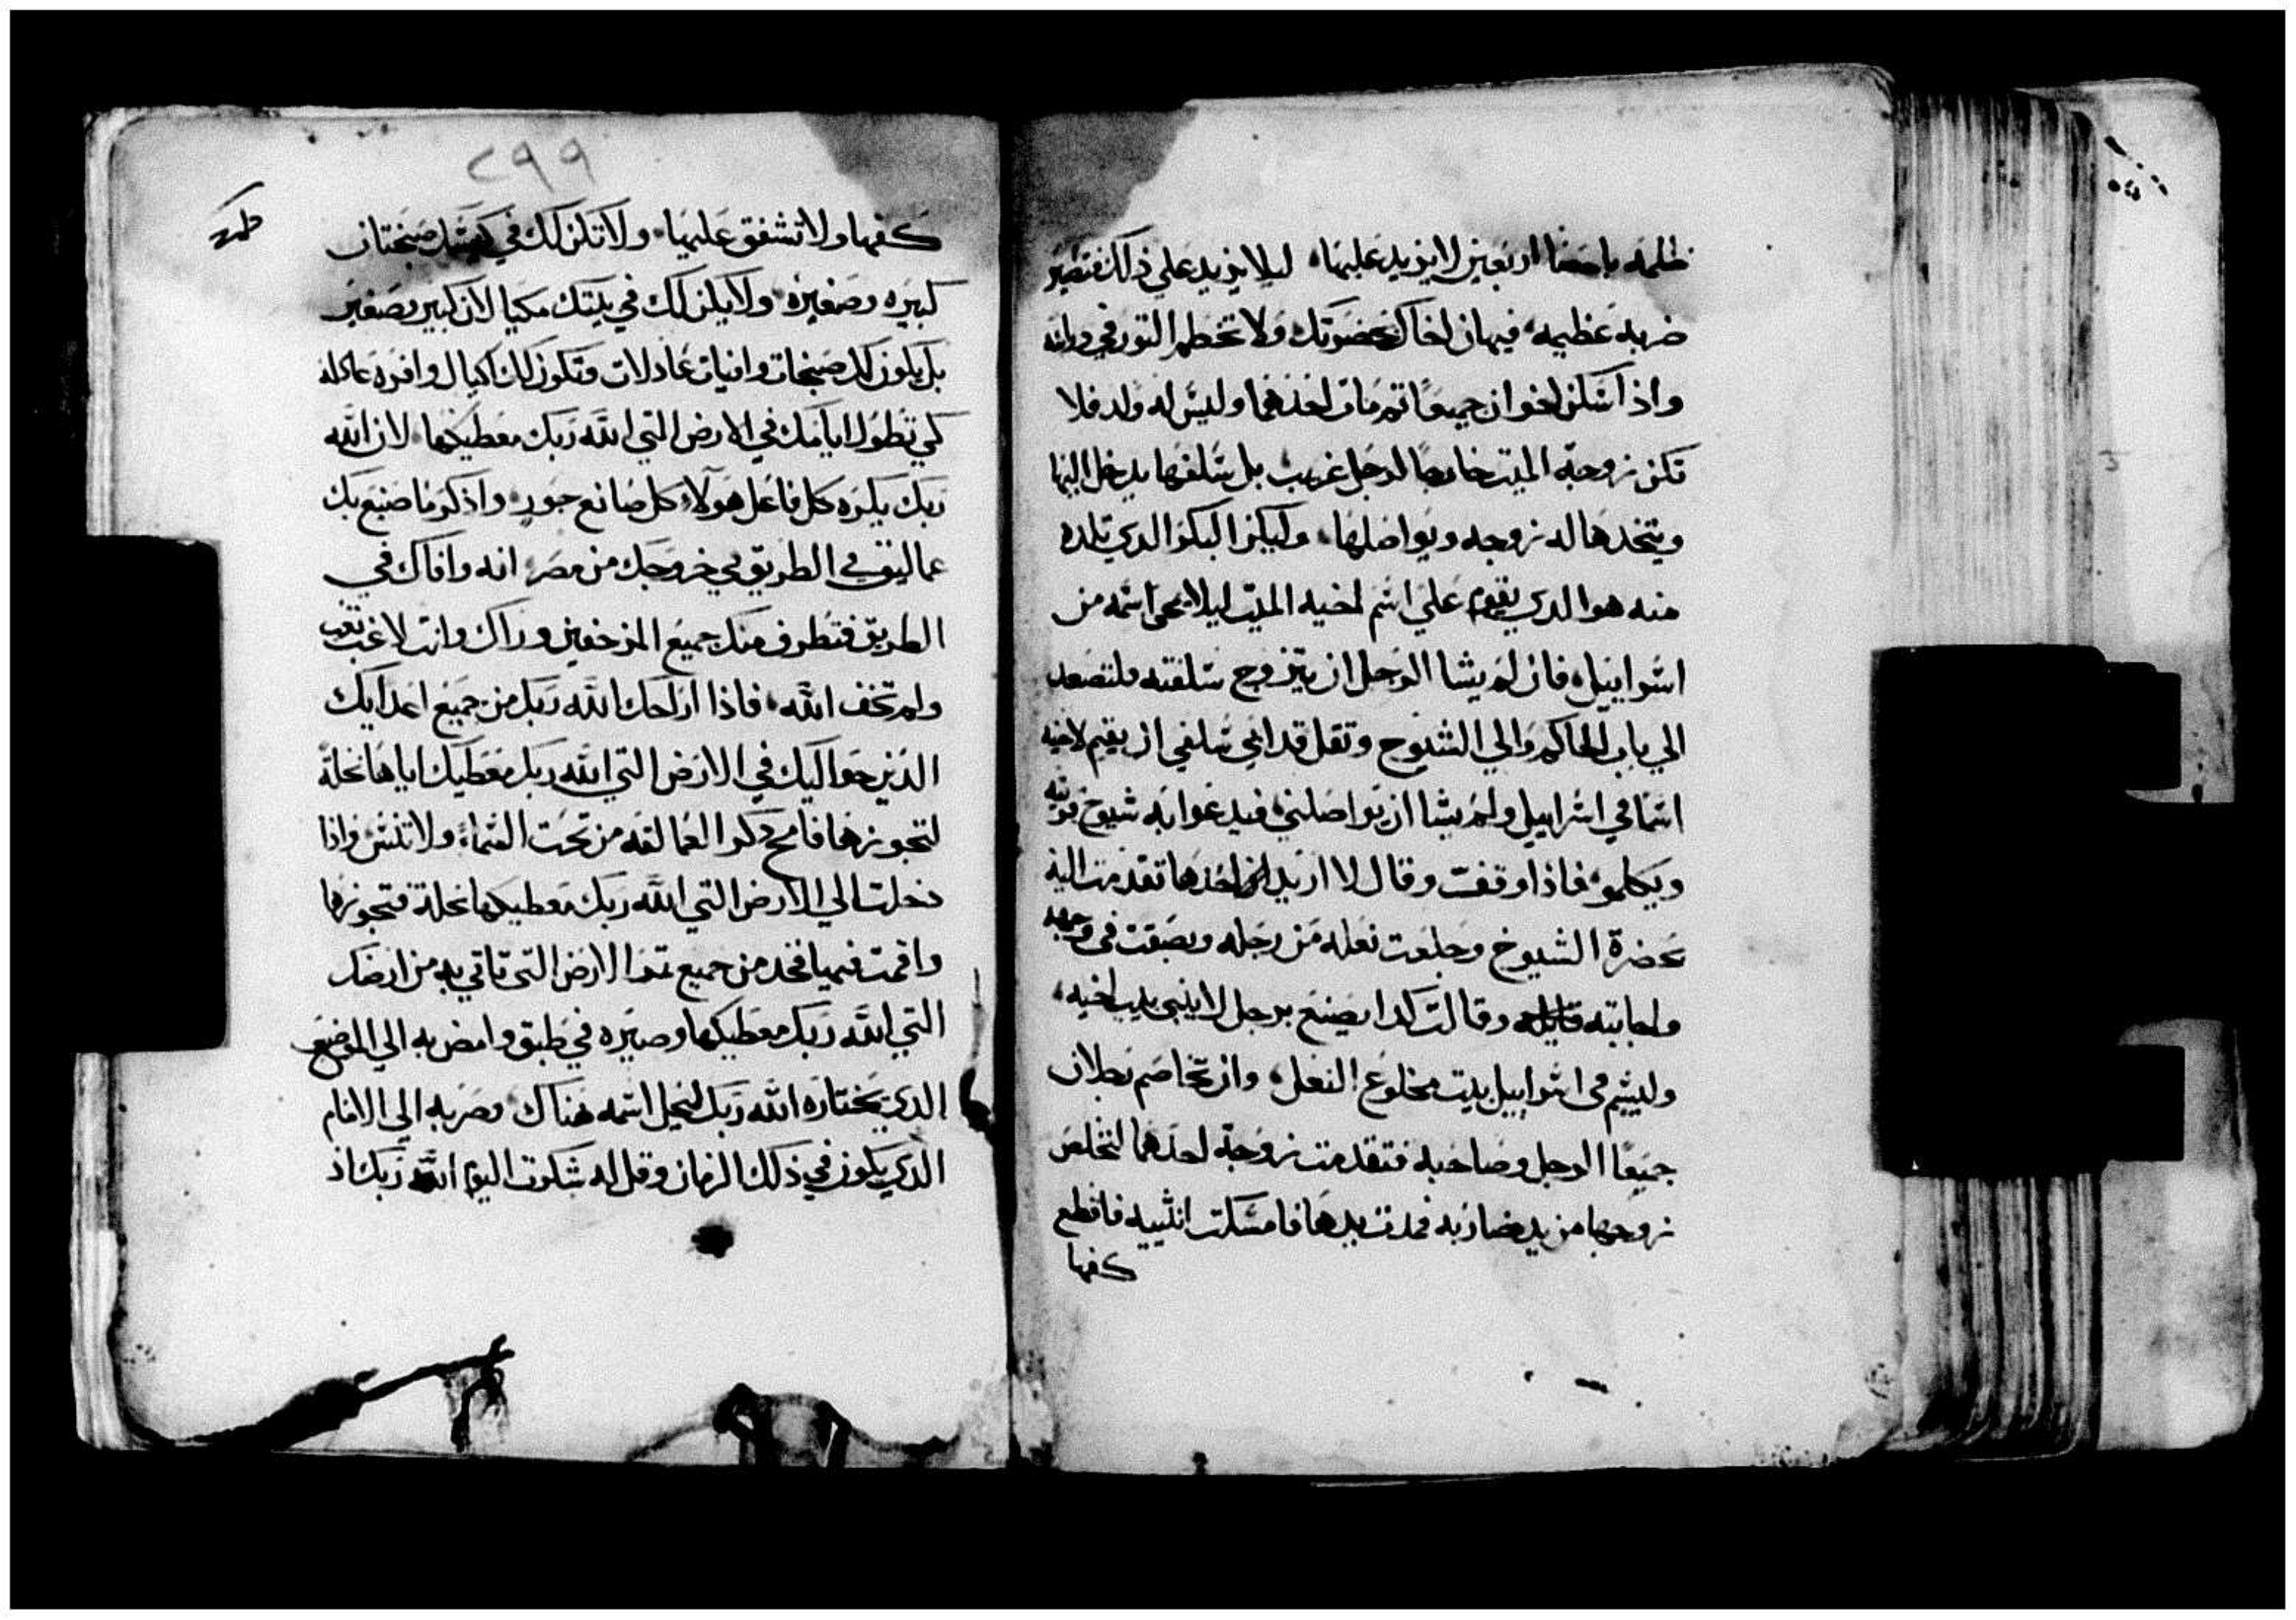 ظلمه باحصا اربعين لايزيد عليها، ليلا يزيد علي ذلك فتصير
ضربه عظيمه، فيهان اخاك بحضرتك ولا تخطم الثور في دراسه
واذا سكن اخوان جميعًا ثم مات احدهما وليس له ولد فلا
تكن زوجة الميت خارجًا لرجل غريب بل سلفها يدخل اليها
ويتخدها له زوجه ويواصلها، وليكن البكر الدي تلده
منه هو الدي يقوم علي اسم اخيه الميت ليلا يمحى اسمه من
اسراييل، فان لم يشا الرجل ان يتزوج سلفته فلتصعد
الي باب الحاكم والي الشيوخ وتقل قد ابي سلفي ان يقيم لاخيه
اسمًا في اسراييل ولم يشا ان يواصلني، فيدعوا به شيوخ قريته
ويكلموه، فاذا وقفت وقال لا اريد ان اخدها تقدمت اليه
بحضرة الشيوخ وخلعت نعله من رجله وبصقت في وجهه
واجابته قايله وقالت كدا يصنع برجل لا يبني بيت اخيه،
وليسم في اسراييل بيت مخلوع النعل، وان تخاصم رجلان
جميعًا الرجل وصاحبه فتقدمت زوجة احدهما لتخلص
زوجها من يد ضاربه فمدت يدها فامسكت انثييه فاقطع
كفها
٢٩٩
كفها ولا تشفق عليها، ولا تكن لك في كيسك صنجتان
كبيره وصغيره، ولا يكن لك في بيتك مكيالان كبير وصغير
بل يكون لك صنجات وافيات عادلات وتكون لك اكيال وافره عادله
كي تطول ايامك في الارض التي الله ربك معطيكها، لان الله
ربك يكره كل فاعل هولاء كل صانع جور، واذكر ما صنع بك
عماليق في الطريق في خروجك من مصر، انه وافاك في
الطريق فتطرف منك جميع المزحفين وراك وانت لاغب تعب
ولم تخف الله، فاذا اراحك الله ربك من جميع اعدايك
الذين حواليك في الارض التي الله ربك معطيك اياها نحلة
لتجوزها فامح ذكر العمالقه من تحت السماء، ولا تنس واذا
دخلت الي الارض التي الله ربك معطيكها نحلة فتجوزها
واقمت فيها فخد من جميع ثمر الارض التي تاتي به من ارضك
التي الله ربك معطيكها وصيره في طبق وامض به الي الموضع
الدي يختاره الله ربك ليحل اسمه هناك، وصر به الي الامام
الدي يكون في ذلك الزمان وقل له شكرت اليوم الله ربك اذ